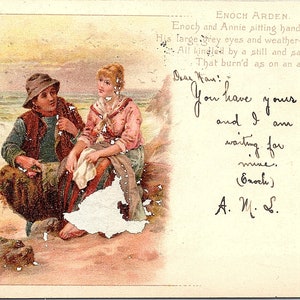 ENOCH ARDEN.
Enoch and Annie sitting hand
His large grey eyes and weather
All kindled by a still and sa
That burn'd as on an a
You have yours
and I am
waiting for
mine.
(Enoch)
A. M. L.